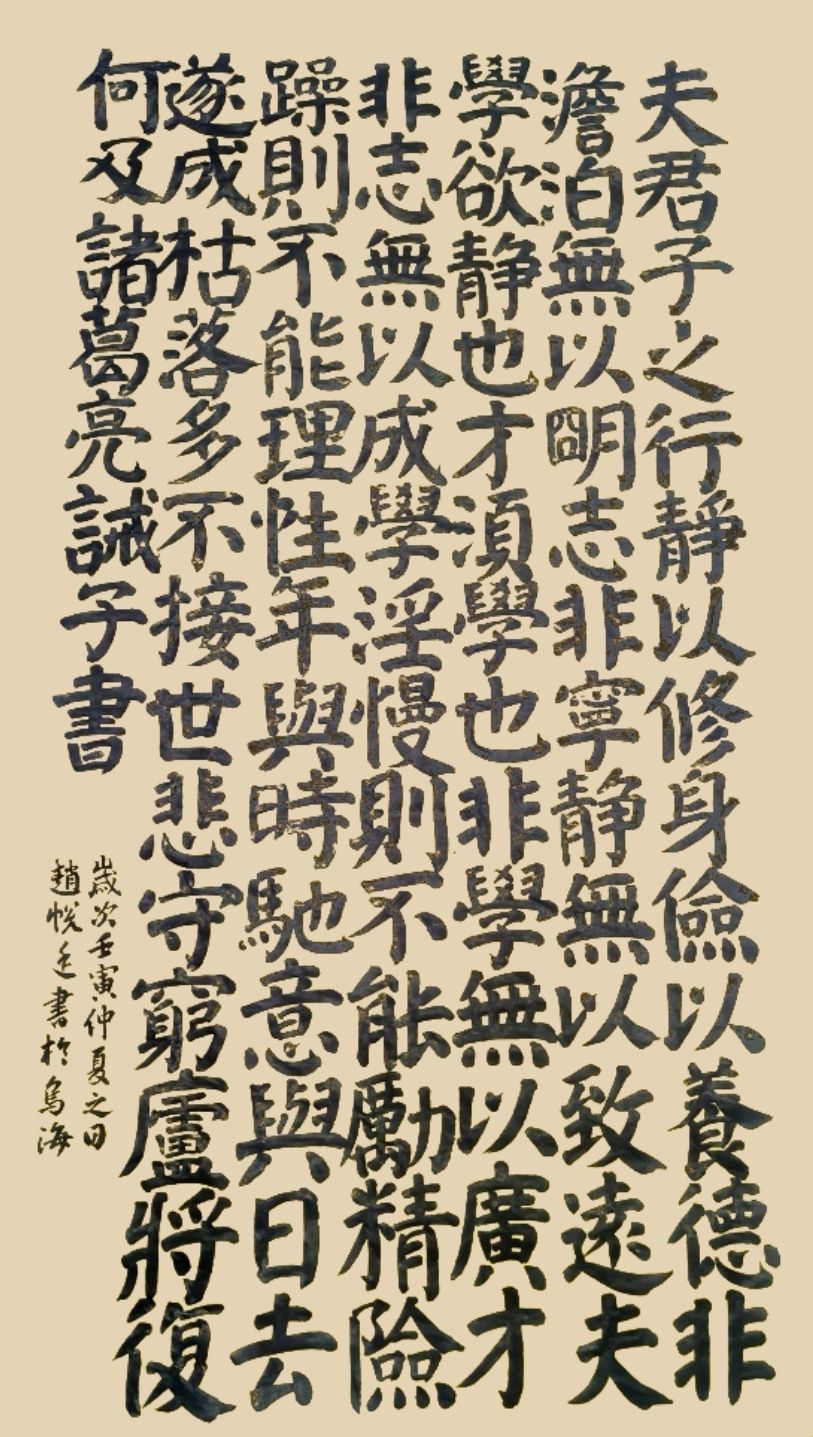 夫君子之行靜以修身儉以養德非
澹泊無以朙志非寧静無以致遠夫
學欲静也才須學也非學無以廣才
非志無以成學淫慢則不能勵精險
躁則不能理性年與時馳意與日去
遂成枯落多不接世悲守窮廬將復
何及諸葛亮誡子書
歲次壬寅仲夏之日
趙悅書於烏海